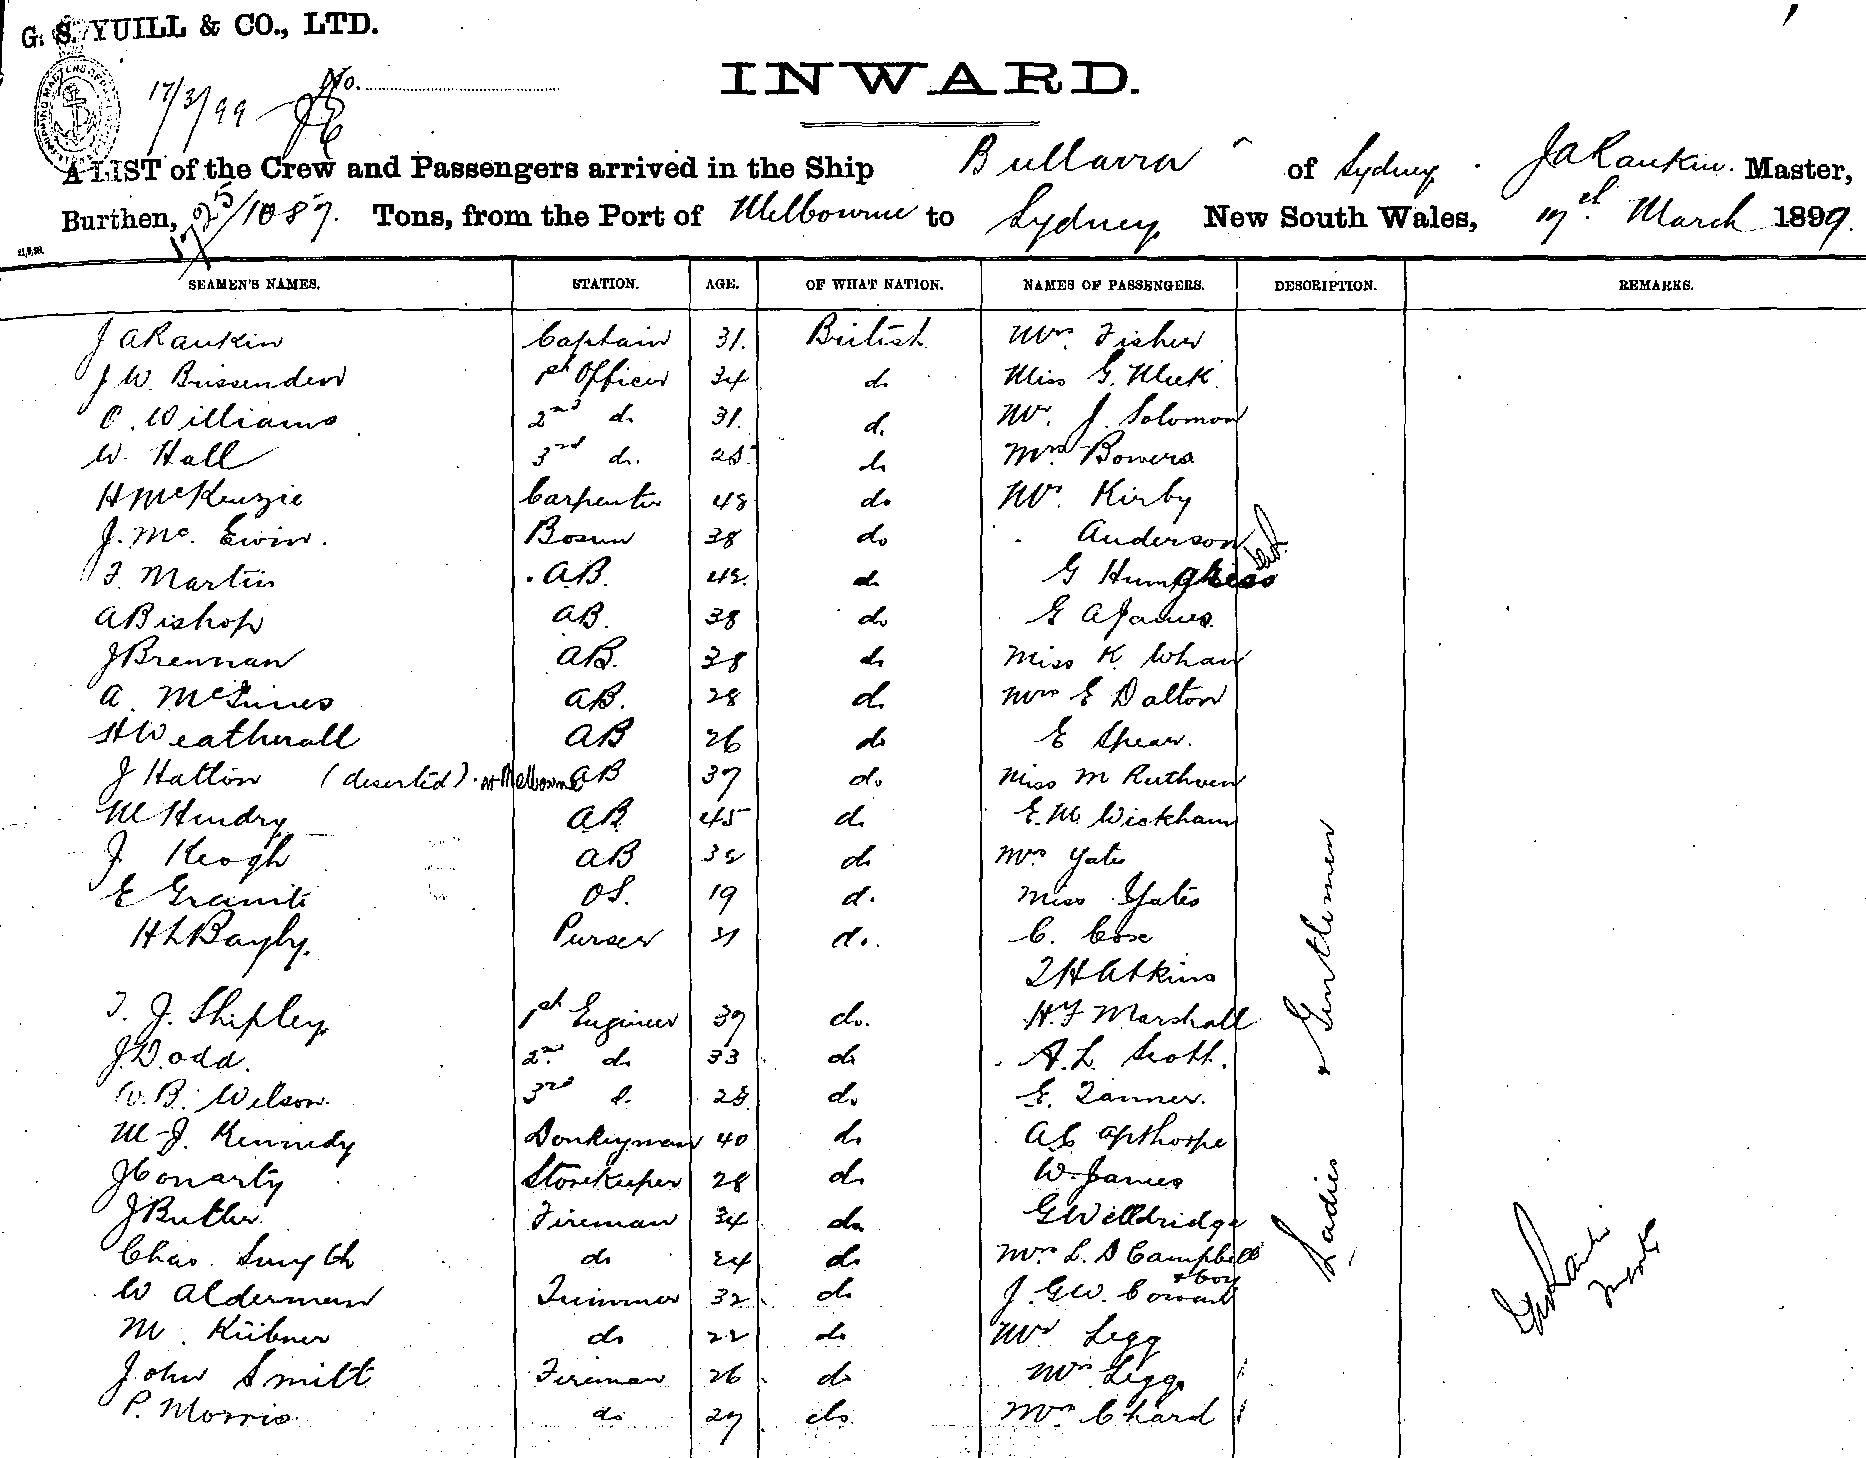 G. S. YUILL & CO., LTD.
17/3/99
No.
INWARD.
A LIST of the Crew and Passengers arrived in the Ship Bullarra of Sydney. J A Rankin. Master,
Burthen, 1725/1087. Tons, from the Port of Melbourne to Sydney, New South Wales, 17th March 1899.
SEAMEN'S NAMES. STATION. AGE. OF WHAT NATION. NAMES OF PASSENGERS. DESCRIPTION. REMARKS.
J A Rankin Captain 31. British Mrs. Fisher
J. W. Brissenden 1st Officer 34 do Miss G. Meek
C. Williams 2nd do 31. do Mr. J. Solomon
W. Hall 3rd do. 25 do Mrs. Bowers
H McKenzie Carpenter 48 do Mr. Kirby
J. Mc. Ewin. Bosun 38 do Anderson
F. Martin AB. 42. do G Humphries
A Bishop AB. 38 do G A James.
J Brennan AB. 38 do Miss K. Whan
A. McInnes AB. 28 do Mrs E Dalton
H Weatherall AB 26 do E Spear.
J Hatton (deserted) at Melbourne AB 37 do Miss M Ruthven
M Hendry AB 45 do E. M. Wickham
J Keogh AB 32 do Mrs. Yates
E Graniti OS. 19 do. Miss Yates
H L Bayly. Purser 31 do. C. Cose
T H Atkins
T. J. Shipley 1st Engineer 39 do. H. F Marshall
J Dodd. 2nd do 33 do A. L. Scott.
W. B. Wilson. 3rd do 28 do E. Tanner.
M. J. Kennedy Donkeyman 40 do A C Apthorpe
J Conarty Storekeeper 28 do W. James
J Butler Fireman 34 do G Welldridge
Chas. Smyth do 24 do Mrs L. D Campbell
& boy
W Alderman Trimmer 32 do J. G. W. Coward
M. Kübner do 22 do Mr Legg
John Smitt Fireman 26 do Mrs Legg
P. Morris do 27 do Mrs Chard
Ladies & Gentlemen